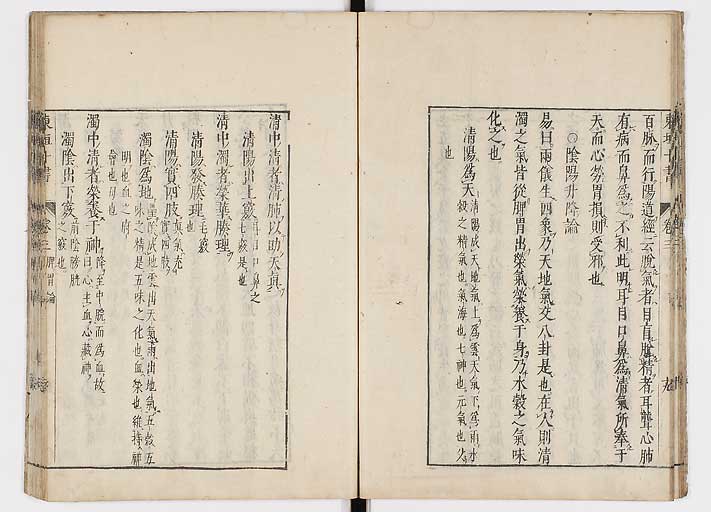 百脉而行陽道經云脫氣者目盲脫精者耳聾心肺
有病而鼻爲之不利此明耳目口鼻爲清氣所奉于
天而心勞胃損則受邪也
○陰陽升降論
易曰兩儀生四象乃天地氣交八卦是也在人則清
濁之氣皆從脾胃出榮氣榮養于身乃水穀之氣味
化之也
清陽爲天清陽成天地氣上爲雲天氣下爲雨水
穀之精氣也氣海也七神也元氣也父
也
清中清者清肺以助天真
清陽出上竅耳目口鼻之
七竅是也
清中濁者榮華腠理
清陽發腠理毛竅
也
清陽實四肢真氣充
實四肢
濁陰爲地垔陰成地雲出天氣雨出地氣五穀五
味之精是五味之化也血榮也維持神
明也血之府
會也母也
濁中清者榮養于神降至中脘而爲血故
曰心主血心藏神
濁陰出下竅前陰膀胱
之竅也
東垣十書
卷三
脾胃論
東垣十書
卷三
九